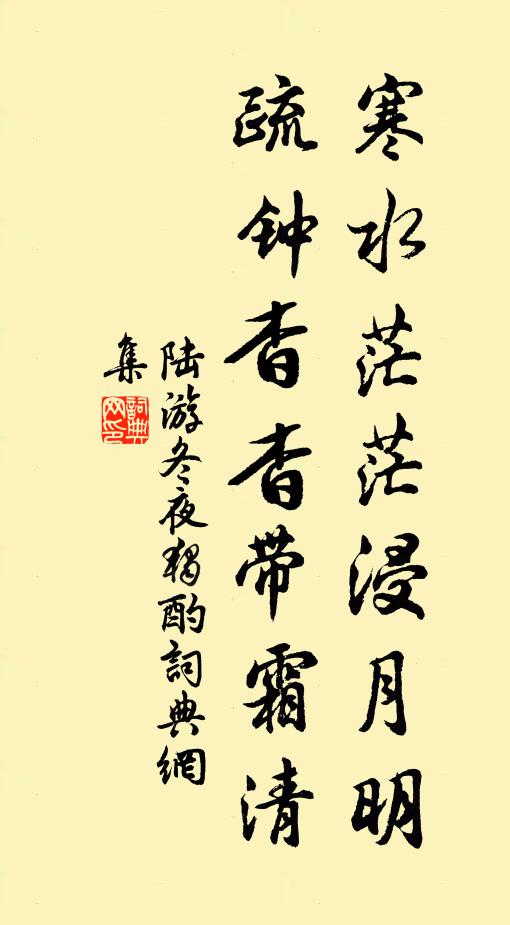 寒水茫茫浸月明
疏钟杳杳带霜清
陆游冬夜独酌詞典網
集
詞典
网印